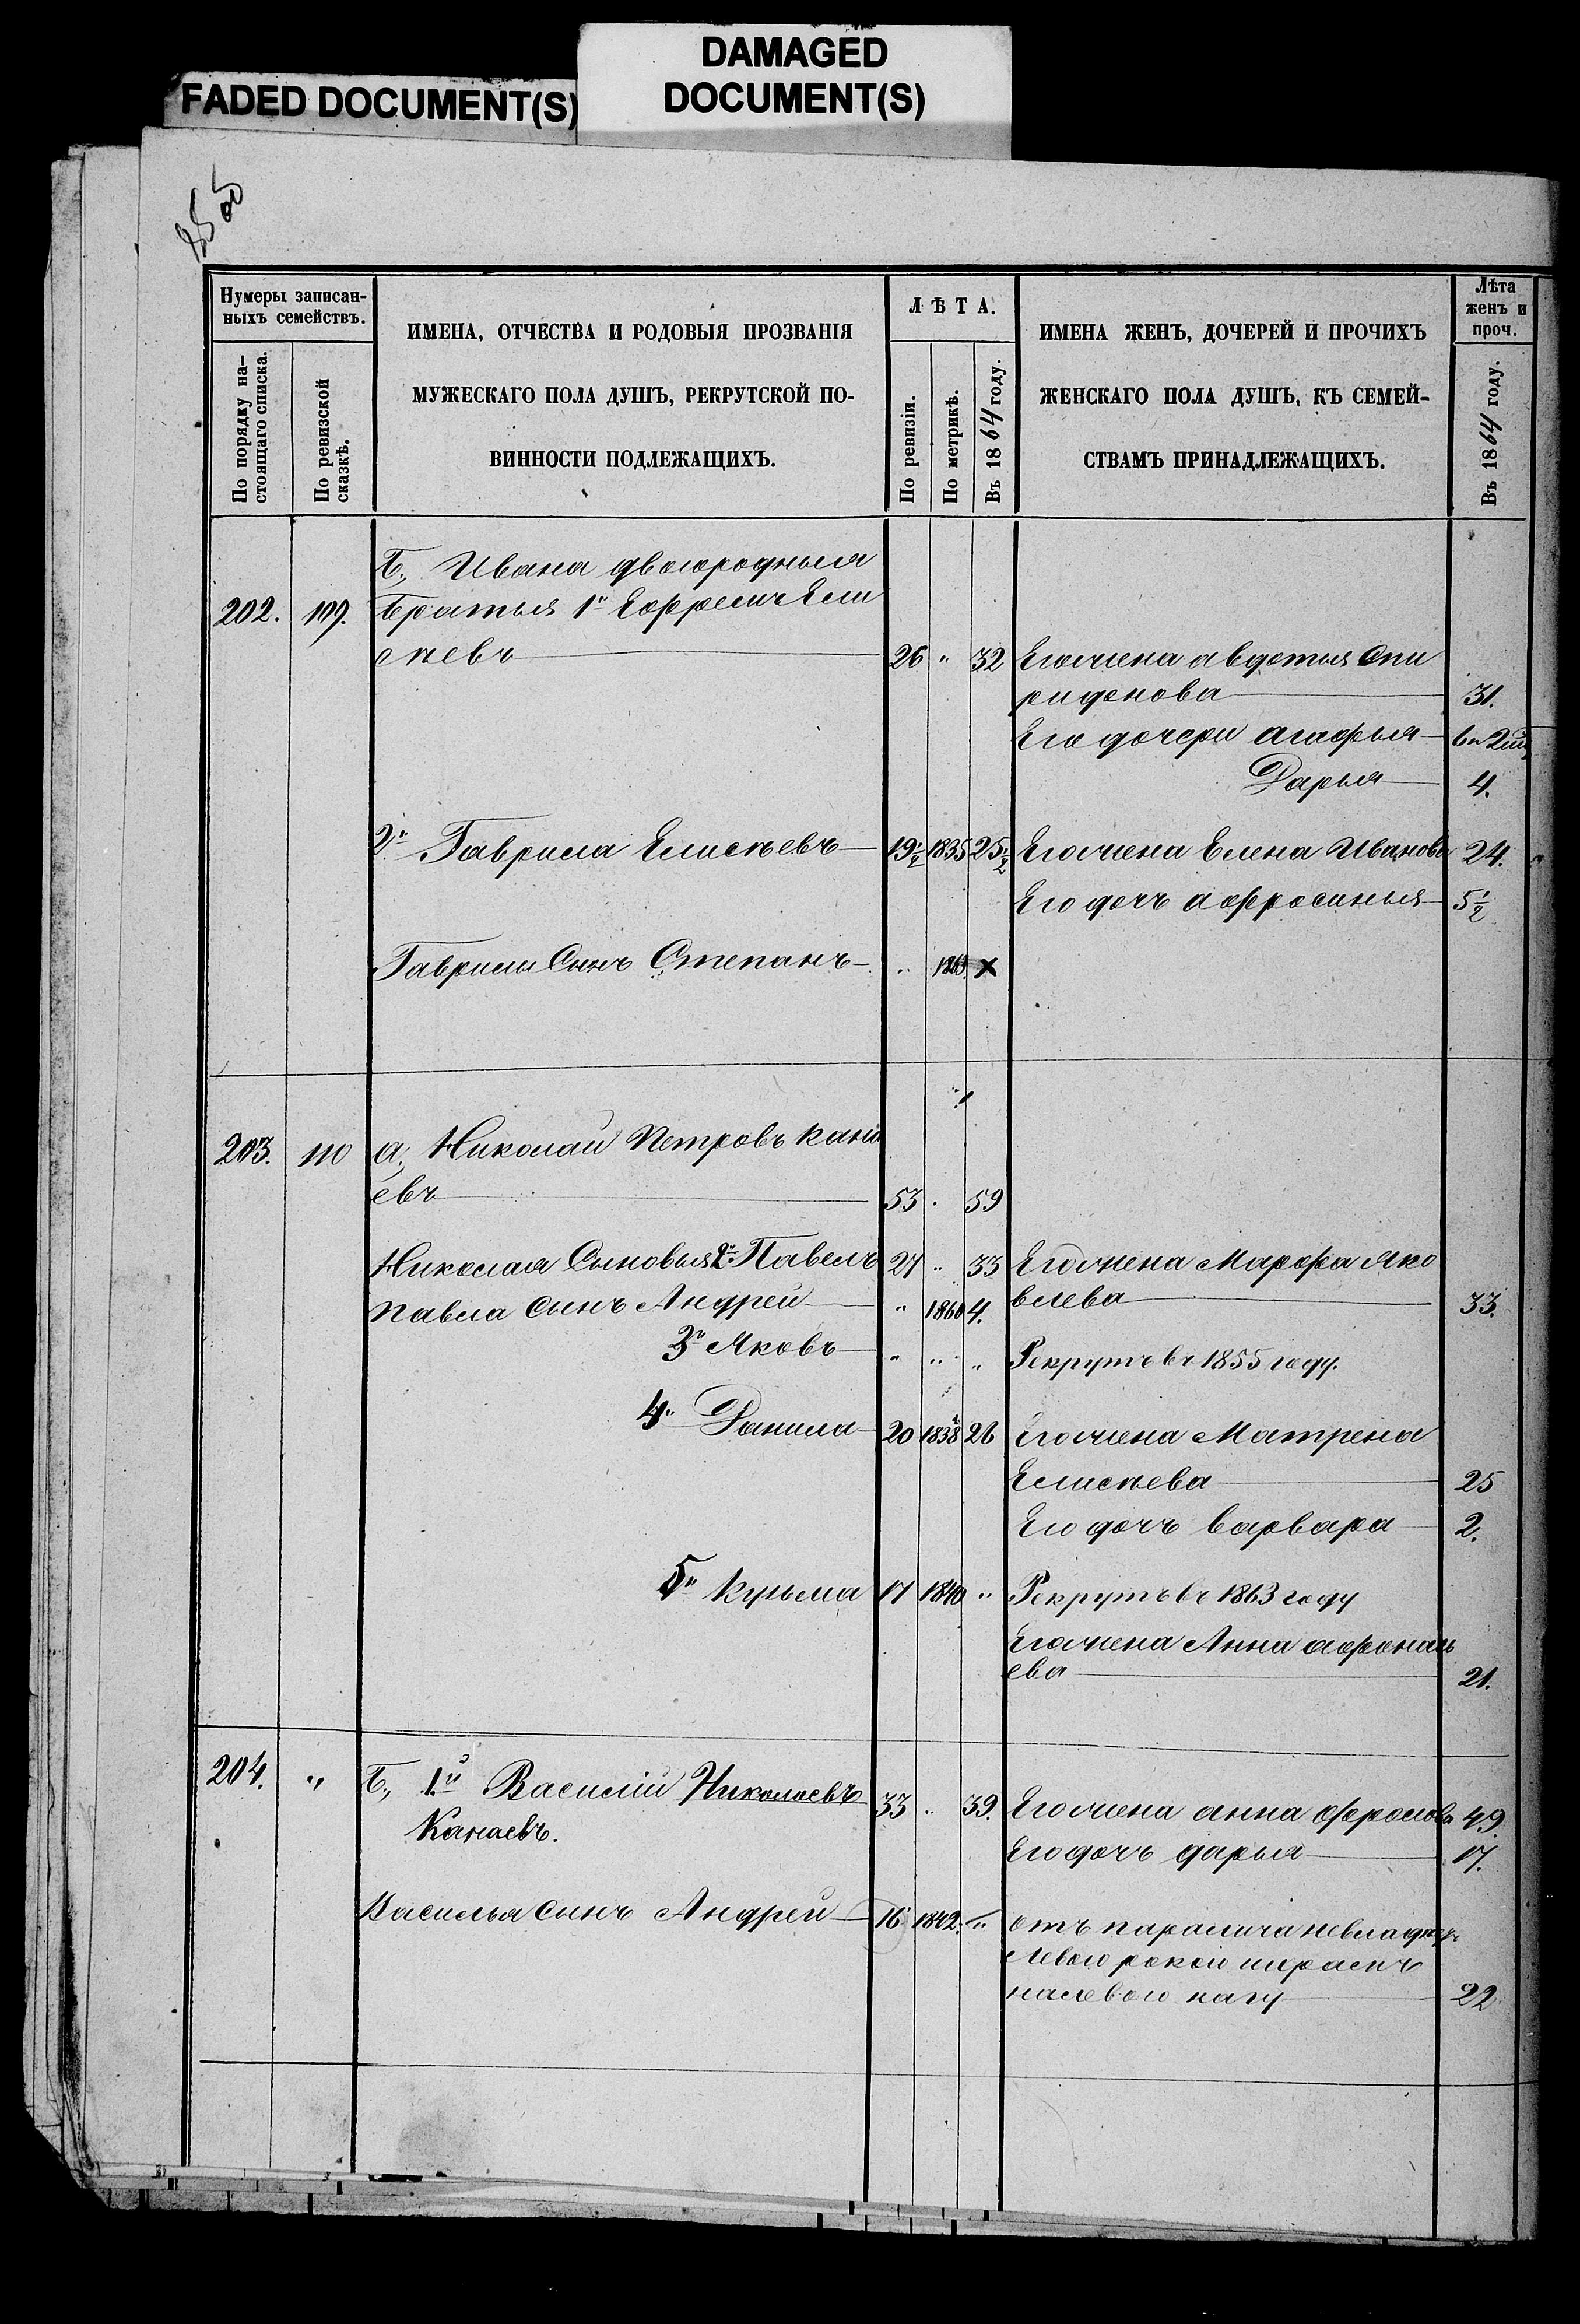 FADED DOCUMENT(S)
DAMAGED
DOCUMENT(S)
Нумеры записан-
ныхъ семействъ.
По порядку на-
стоящаго списка.
По ревизской
сказкѣ.
ИМЕНА, ОТЧЕСТВА И РОДОВЫЯ ПРОЗВАНІЯ
МУЖЕСКАГО ПОЛА ДУШЪ, РЕКРУТСКОЙ ПО-
ВИННОСТИ ПОДЛЕЖАЩИХЪ.
ЛѢТА.
По ревизіи.
По метрикѣ.
Въ 1864 году.
ИМЕНА ЖЕНЪ, ДОЧЕРЕЙ И ПРОЧИХЪ
ЖЕНСКАГО ПОЛА ДУШЪ, КЪ СЕМЕЙ-
СТВАМЪ ПРИНАДЛЕЖАЩИХЪ.
Лѣта
женъ и
проч.
Въ 1864 году.
Б., Ивана двоюродныя
202. 109. Братья 1й Ефремъ Ели
сѣевъ 26 " 32 Его жена авдотья Спи
ридонова 31.
Его дочери агафья
Дарья 4.
2й Гаврила Елисѣевъ 19½ 1835 25½ Его жена Елена Иванова 24.
Его дочь афросинья 5½
Гаврилы Сынъ Степанъ " 1863. х
203. 110 а; Николай Петровъ кана
евъ 53 . 59
Николая Сыновья 2й Павелъ 27 " 33 Его жена Марфа Яко
влева 33.
Павла Сынъ Андрей " 1860 4.
3й Яковъ " " " Рекрутъ въ 1855 году.
4й Данила 20 1838 26 Его жена Матрена
Елисѣева 25
Его дочь варвара 2.
5й Кузьма 17 1840 " Рекрутъ въ 1863 году
Его жена Анна афонась
ева 21.
204. " Б., 1й Василій Николаевъ 33 " 39. Его жена анна фролова 49.
Канаевъ.
Его дочь дарья 17.
Василья сынъ Андрей 16 1842. " отъ паралича невладѣетъ
левою рокою
налевою нагу 22